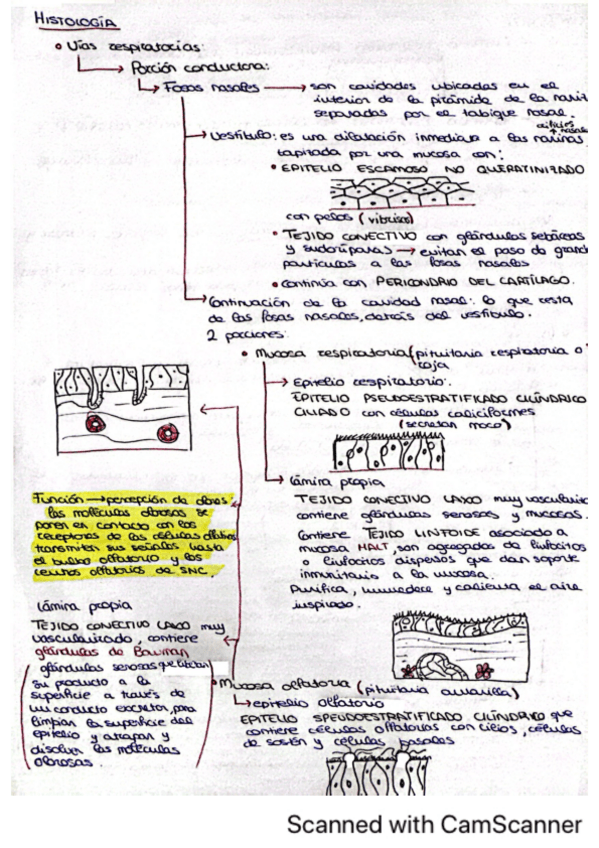 HISTOLOGÍA
• Vías respiratorias:
Porción conductora:
Fosas nasales → son cavidades ubicadas en el
interior de la pirámide de la nariz
separadas por el tabique nasal.
Vestíbulo: es una dilatación inmediata a las narinas
tapizada por una mucosa con:
• EPITELIO ESCAMOSO NO QUERATINIZADO
con pelos (vibrisas)
• TEJIDO CONECTIVO con glándulas sebáceas
y sudoríparas → evitan el paso de grand
partículas a las fosas nasales
• Continúa con PERICONDRIO DEL CARTÍLAGO.
Continuación de la cavidad nasal: lo que resta
de las fosas nasales, detrás del vestíbulo.
2 porciones:
• Mucosa respiratoria (pituitaria respiratoria o
roja
Epitelio respiratorio:
EPITELIO PSEUDOESTRATIFICADO CILÍNDRICO
CILIADO con células caliciformes
(secretan moco)
Lámina propia
TEJIDO CONECTIVO LAXO muy vasculariz
contiene glándulas serosas y mucosas.
Contiene TEJIDO LINFOIDE asociado a
mucosa MALT, son agregados de linfocitos
o linfocitos dispersos que dan soporte
inmunitario a la mucosa.
Purifica, humedece y calienta el aire
inspirado.
Función → percepción de olores:
las moléculas olorosas se
ponen en contacto con los
receptores de las células olfativas
transmiten sus señales hasta
el bulbo olfatorio y los
centros olfatorios de SNC.
Lámina propia
TEJIDO CONECTIVO LAXO muy
vascularizado, contiene
glándulas de Bowman
glándulas serosas que liberan
su producto a la
superficie a través de
un conducto excretor, para
limpian la superficie del
epitelio y atrapan y
disolver las moléculas
olorosas.
• Mucosa olfatoria (pituitaria amarilla)
epitelio olfatorio
EPITELIO SPEUDOESTRATIFICADO CILÍNDRICO que
contiene células olfatorias con cilios, células
de sostén y células basales
Scanned with CamScanner